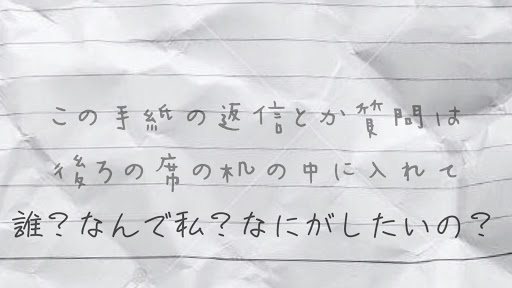 この手紙の返信とか質問は
後ろの席の机の中に入れて
誰？なんで私？なにがしたいの？